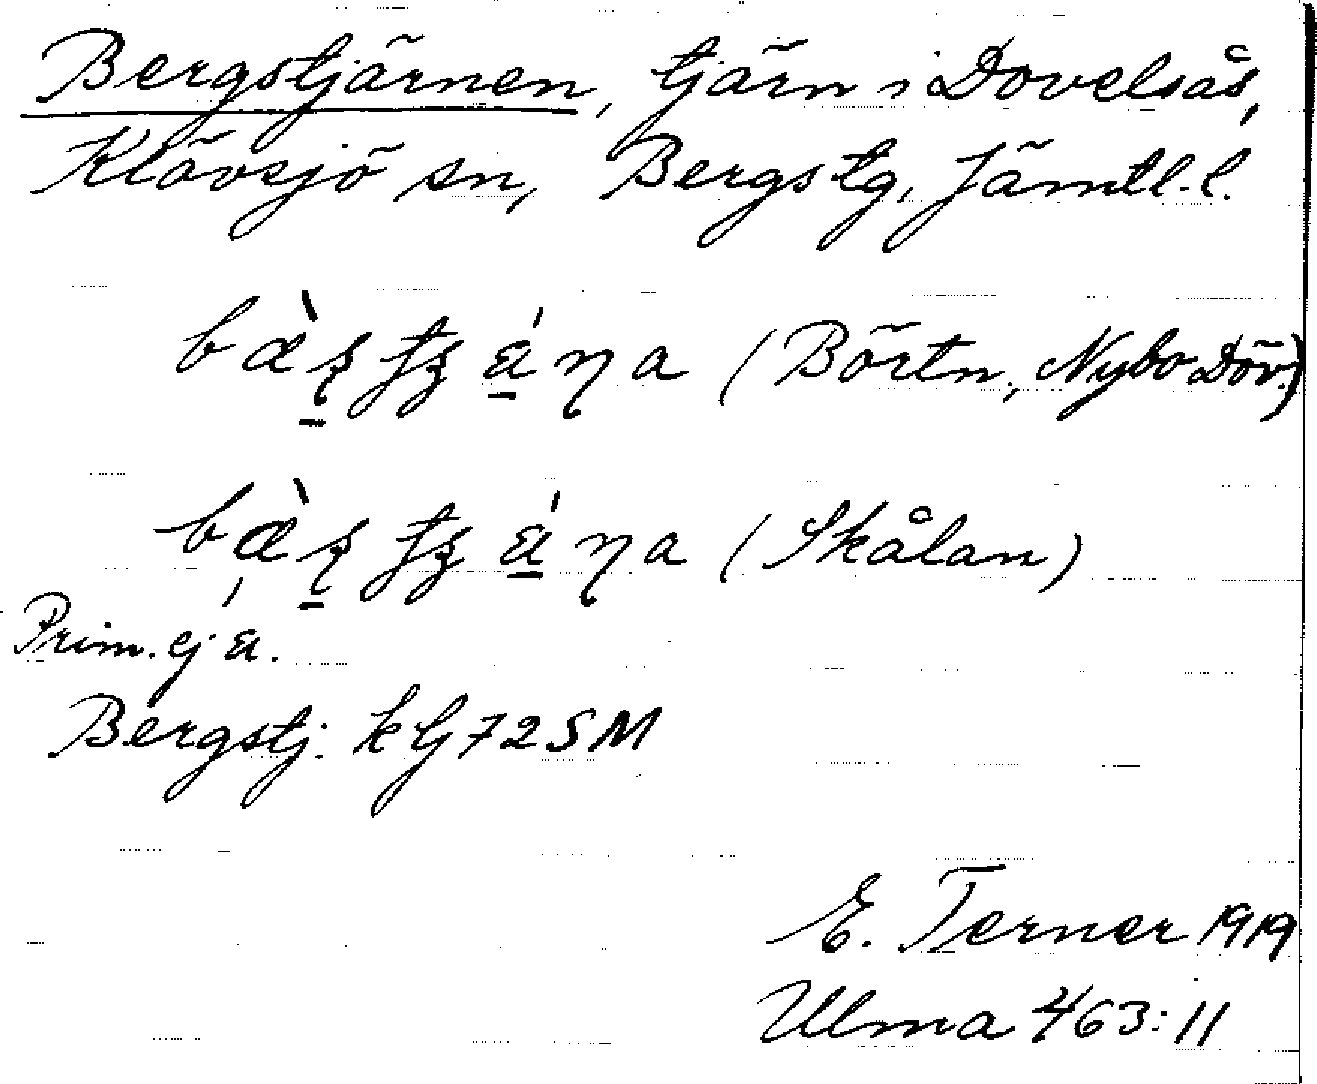 Bergstjärnen, tjärn i Dovelsås,
Klövsjö sn, Bergs tg, Jämtl. l.
(Börtn, Nybo Döv.)
(Skålan)
Prim. ej
Bergstj. kbl 72 SM
E. Terner 1919
Ulma 463:11